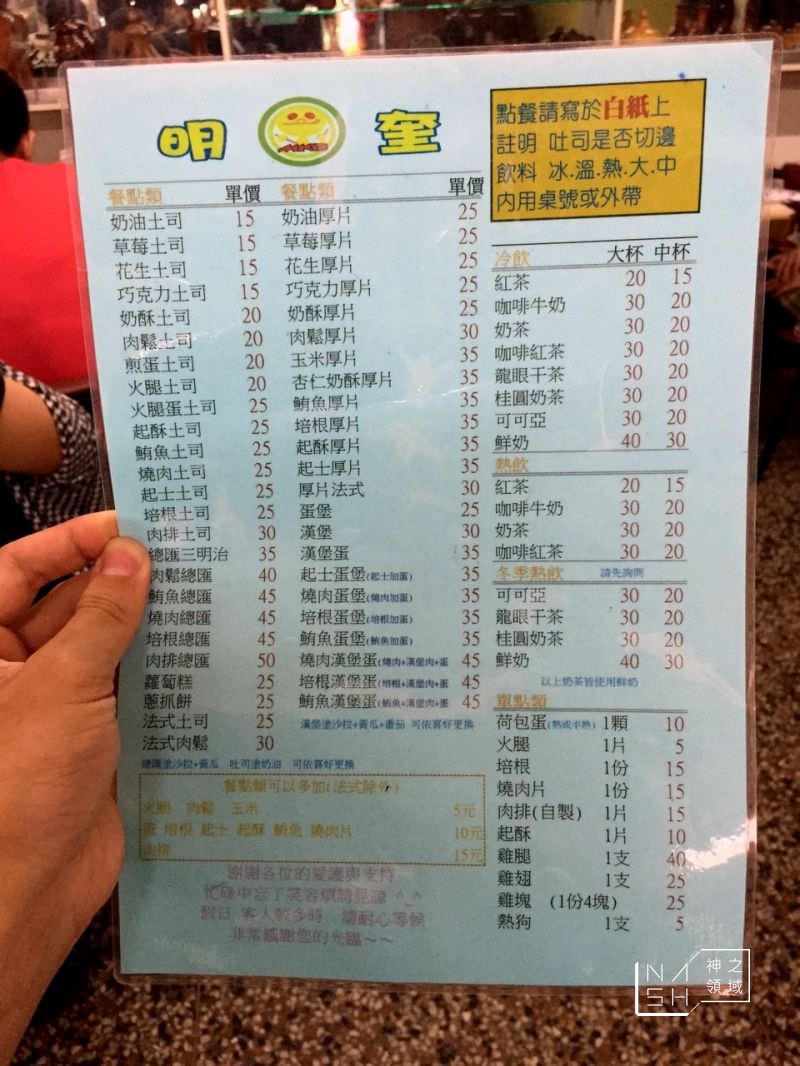 明 奎
點餐請寫於白紙上
註明 吐司是否切邊
飲料 冰.溫.熱.大.中
內用桌號或外帶
餐點類 單價
奶油土司 15
草莓土司 15
花生土司 15
巧克力土司 15
奶酥土司 20
肉鬆土司 20
煎蛋土司 20
火腿土司 20
火腿蛋土司 25
起酥土司 25
鮪魚土司 25
燒肉土司 25
起士土司 25
培根土司 25
肉排土司 30
總匯三明治 35
肉鬆總匯 40
鮪魚總匯 45
燒肉總匯 45
培根總匯 45
肉排總匯 50
蘿蔔糕 25
蔥抓餅 25
法式土司 25
法式肉鬆 30
總匯塗沙拉+黃瓜 吐司塗奶油 可依喜好更換
餐點類 單價
奶油厚片 25
草莓厚片 25
花生厚片 25
巧克力厚片 25
奶酥厚片 25
肉鬆厚片 30
玉米厚片 35
杏仁奶酥厚片 35
鮪魚厚片 35
培根厚片 35
起酥厚片 35
起士厚片 35
厚片法式 30
蛋堡 25
漢堡 30
漢堡蛋 35
起士蛋堡(起士加蛋) 35
燒肉蛋堡(燒肉加蛋) 35
培根蛋堡(培根加蛋) 35
鮪魚蛋堡(鮪魚加蛋) 35
燒肉漢堡蛋(燒肉+漢堡肉+蛋 45
培根漢堡蛋(培根+漢堡肉+蛋 45
鮪魚漢堡蛋(鮪魚+漢堡肉+蛋 45
漢堡塗沙拉+黃瓜+番茄 可依喜好更換
餐點類可以多加(法式除外)
火腿 肉鬆 玉米 5元
蛋 培根 起士 起酥 鮪魚 燒肉片 10元
肉排 15元
謝謝各位的愛護與支持
忙碌中忘了笑容煩請見諒 ^_^
假日 客人較多時 請耐心等候
非常感謝您的光臨～～
冷飲 大杯 中杯
紅茶 20 15
咖啡牛奶 30 20
奶茶 30 20
咖啡紅茶 30 20
龍眼干茶 30 20
桂圓奶茶 30 20
可可亞 30 20
鮮奶 40 30
熱飲
紅茶 20 15
咖啡牛奶 30 20
奶茶 30 20
咖啡紅茶 30 20
冬季熱飲 請先詢問
可可亞 30 20
龍眼干茶 30 20
桂圓奶茶 30 20
鮮奶 40 30
以上奶茶皆使用鮮奶
單點類
荷包蛋(熟或半熟) 1顆 10
火腿 1片 5
培根 1份 15
燒肉片 1份 15
肉排(自製) 1片 15
起酥 1片 10
雞腿 1支 40
雞翅 1支 25
雞塊 (1份4塊) 25
熱狗 1支 5
NASH 神之領域